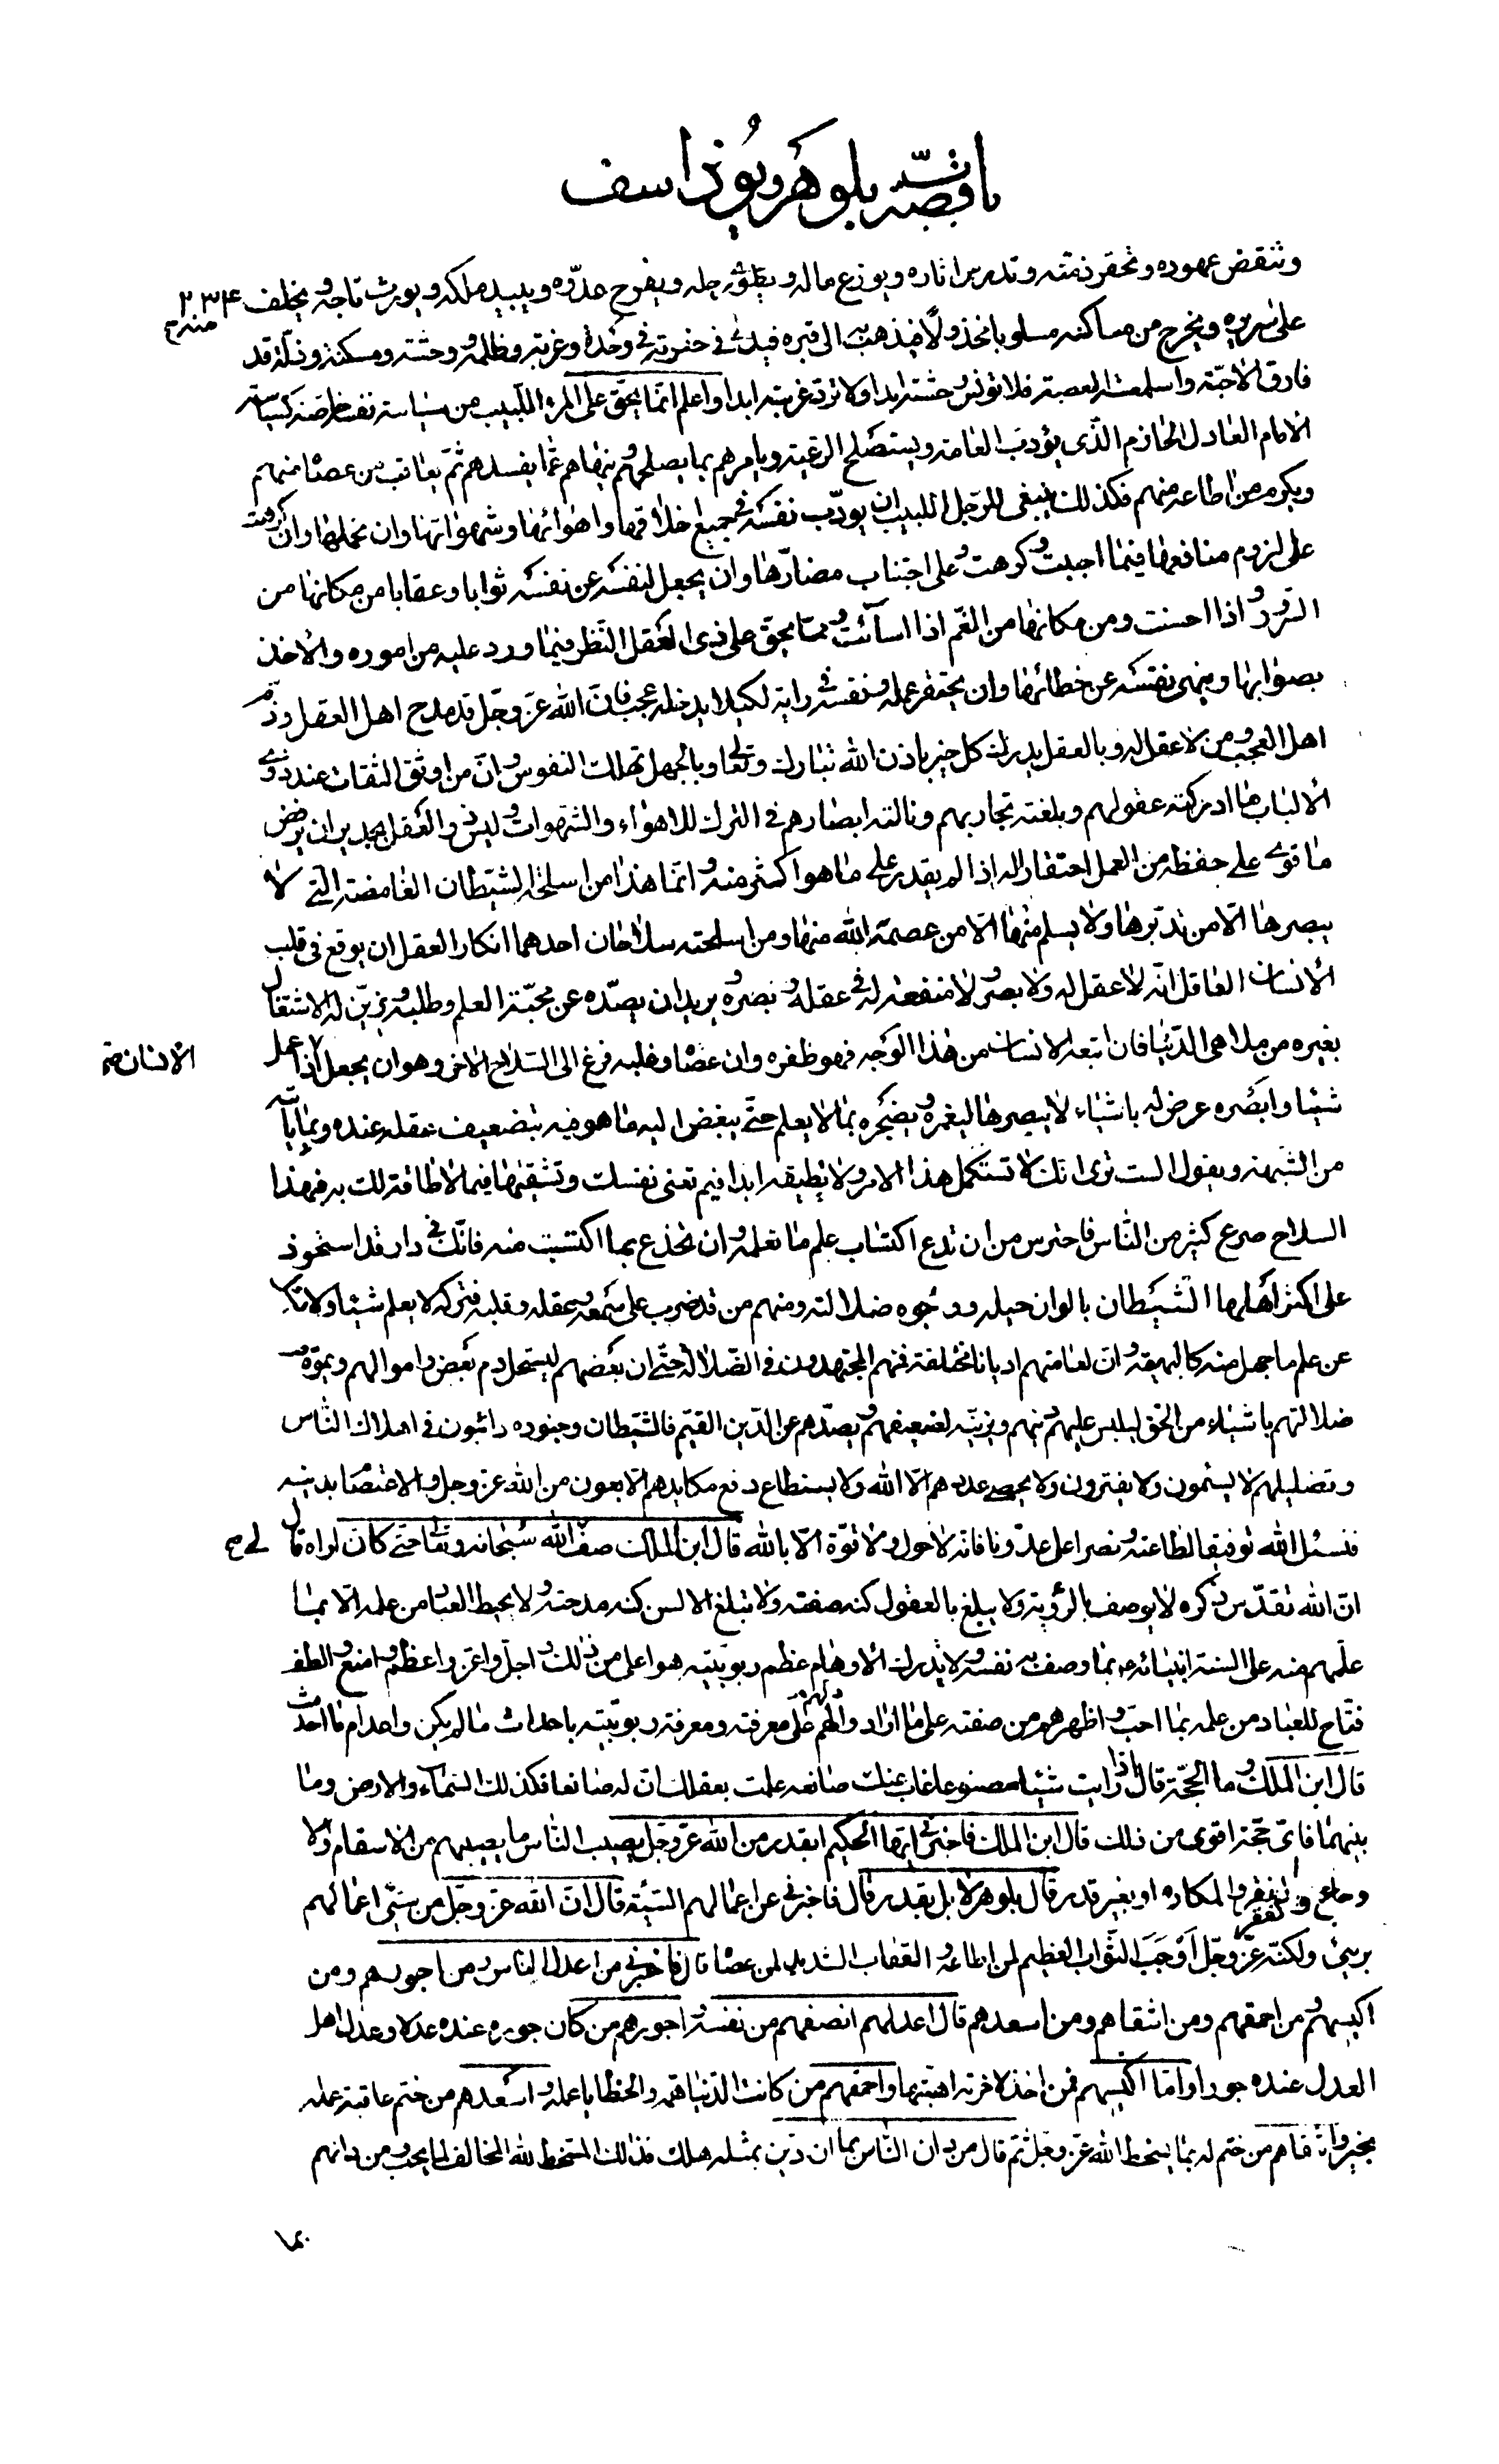 باب قصّة بلوهر ويوذاسف
وتنقض عهوده وتحقر ذمّته وتدبر اثاره ويوزع ماله ويطوى رحله ويفرح عدّوه ويبيد ملكه ويورث تاجه ويخلف
٢٣٤
منه ح
على سريره ويخرج من مساكنه مسلوبا مخذولًا فيذهب به الى قبره فيدلى في حفرته في وحدة وغربة وظلمة ووحشة ومسكنة وذلّة قد
فارق الاحبّة واسلمته العصبة فلا تونس وحشته ابدا ولا تردّ غربته ابدا واعلم انّما يحقّ على المرء اللّبيب من سياسة نفسه خاصة كسياسة
الامام العادل الحازم الّذى يؤدب العامة ويستصلح الرعيّة ويامرهم بما يصلحهم وينهاهم عمّا يفسدهم ثمّ يعاقب من عصاه منهم
ويكرم من اطاعه منهم فكذلك ينبغى للرّجل اللبيب ان يودّب نفسه في جميع اخلاقها واهوائها وشهواتها وان يحملها وان كرهت
على لزوم منافعها فيما احببت وكرهت وعلى اجتناب مضارّها وان يجعل لنفسه عن نفسه ثوابا وعقابا من مكانها من
السّرور اذا احسنت ومن مكانها من الغّم اذا اسآئت وممّا يحقّ على ذى العقل النّظر فيما ورد عليه من اموره والاخذ
بصوابها وينهى نفسه عن خطائها وان يحتقر عمله ونفسه في رايه لكيلا يدخله عجب فانّ الله عزّ وجلّ قد مدح اهل العقل وذمّ
اهل العجب ومن لا عقل له وبالعقل يدرك كل خير باذن الله تبارك وتعالى وبالجهل تهلك النفوس وانّ من اوثق الثقات عند ذوى
الالباب ما ادركته عقولهم وبلغته تجاربهم ونالته ابصارهم في الترك للاهواء والشّهوات وليس ذو العقل بجدير ان يرفض
ما قوى على حفظه من العمل احتقارا له اذا لم يقدر على ما هو اكثر منه وانّما هذا من اسلحة الشّيطان الغامضة الّتى لا
يبصرها الّا من تدبّرها ولا يسلم منها الّا من عصمه الله منها ومن اسلحته سلاحان احدهما انكار العقل ان يوقع في قلب
الانسان العاقل انّه لا عقل له ولا بصر ولا منفعة له في عقله وبصره يريد ان يصدّه عن محبّة العلم وطلبه ويزيّن له الاشتغال
بغيره من ملاهى الدّنيا فان اتبعه الانسان من هذا الوجه فهو ظفره وان عصاه وغلبه فزع الى السّلاح الاخر وهو ان يجعل اذا عمل
الانسان صح
شيئا وابصره عرض له باشياء لا يبصرها ليغمّه ويضجره بما لا يعلم حتّى يبغض اليه ما هو فيه بتضعيف عقله عنده وبما ياتيه
من الشّبهة ويقول الست ترى انّك لا تستكمل هذا الامر ولا تطيقه ابدا فبم تعنى نفسك وتشقيها فيما لا طاقة لك به فبهذا
السلاح صرع كثير من النّاس فاحترس من ان تدع اكتساب علم ما تعلم وان تخدع عما اكتسبت منه فانّك في دار قد استحوذ
على اكثر اهلها الشّيطان بالوان حيله ووجوه ضلالته ومنهم من قد ضرب على سمعه وعقله وقلبه فتركه لا يعلم شيئا ولا يسئل
عن علم ما جهل منه كالبهيمة وانّ لعامتهم اديانا مختلفة فمنهم المجتهدون في الضّلالة حتّى ان بعضهم ليستحل دم بعض واموالهم ويموّه
ضلالتهم باشياء من الحقّ ليلبس عليهم دينهم ويزيّنه لضعيفهم ويصدّهم عن الدّين القيّم فالشّيطان وجنوده دائبون في اهلاك النّاس
وتضليلهم لا يسئمون ولا يفترون ولا يحصى عددهم الّا الله ولا يستطاع دفع مكايدهم الّا بعون من الله عزّ وجلّ والاعتصام بدينه
فنسئل الله توفيقا لطاعته ونصرا على عدّونا فانّه لا حول ولا قوّة الّا بالله قال ابن الملك صف الله سبحانه وتعالى حتى كانّى اراه قال
لى ح
انّ الله تقدّس ذكره لا يوصف بالرّؤية ولا يبلغ بالعقول كنه صفته ولا تبلغ الالسن كنه مدحته ولا يحيط العباد من علمه الّا بما
علّمهم منه على السنة انبيائه بما وصف به نفسه ولا تدرك الاوهام عظم ربوبيّته هو اعلى من ذلك واجلّ واعزّ واعظم وامنع والطف
فتّاح للعباد من علمه بما احبّ واظهرهم من صفته على ما اراد ودلّهم على معرفته ومعرفة ربوبيّته باحداث ما لم يكن واعدام ما احدث
قال ابن الملك وما الحجّة قال اذا رايت شيئا مصنوعا غاب عنك صانعه علمت بعقلك انّ له صانعا فكذلك السّماء والارض وما
بينهما فاىّ حجّة اقوى من ذلك قال ابن الملك فاخبرنى ايّها الحكيم ابقدر من الله عزّ وجلّ يصيب النّاس ما يصيبهم من الاسقام والا
وجاع والفقر والمكاره او بغير قدر قال بلوهر لا بل بقدر قال فاخبرنى عن اعمالهم السّيّئة قال انّ الله عزّ وجلّ من سيّئ اعمالهم
برىء ولكنّه عزّ وجلّ اوجب الثّواب العظيم لمن اطاعه والعقاب الشديد لمن عصاه قال فاخبرنى من اعدل النّاس ومن اجورهم ومن
اكيسهم ومن احمقهم ومن اشقاهم ومن اسعدهم قال اعدلهم انصفهم من نفسه واجورهم من كان جوره عنده عدلا وعدل اهل
العدل عنده جورا وامّا اكيسهم فمن اخذ لاخرته اهبتها واحمقهم من كانت الدّنيا همّه والخطايا عمله واسعدهم من ختم عاقبة عمله
بخير واشقاهم من ختم له بما يسخط الله عزّ وجلّ ثمّ قال من دان النّاس بما ان دين بمثله هلك فذلك المسخط لله المخالف لما يحب ومن دانهم
بما